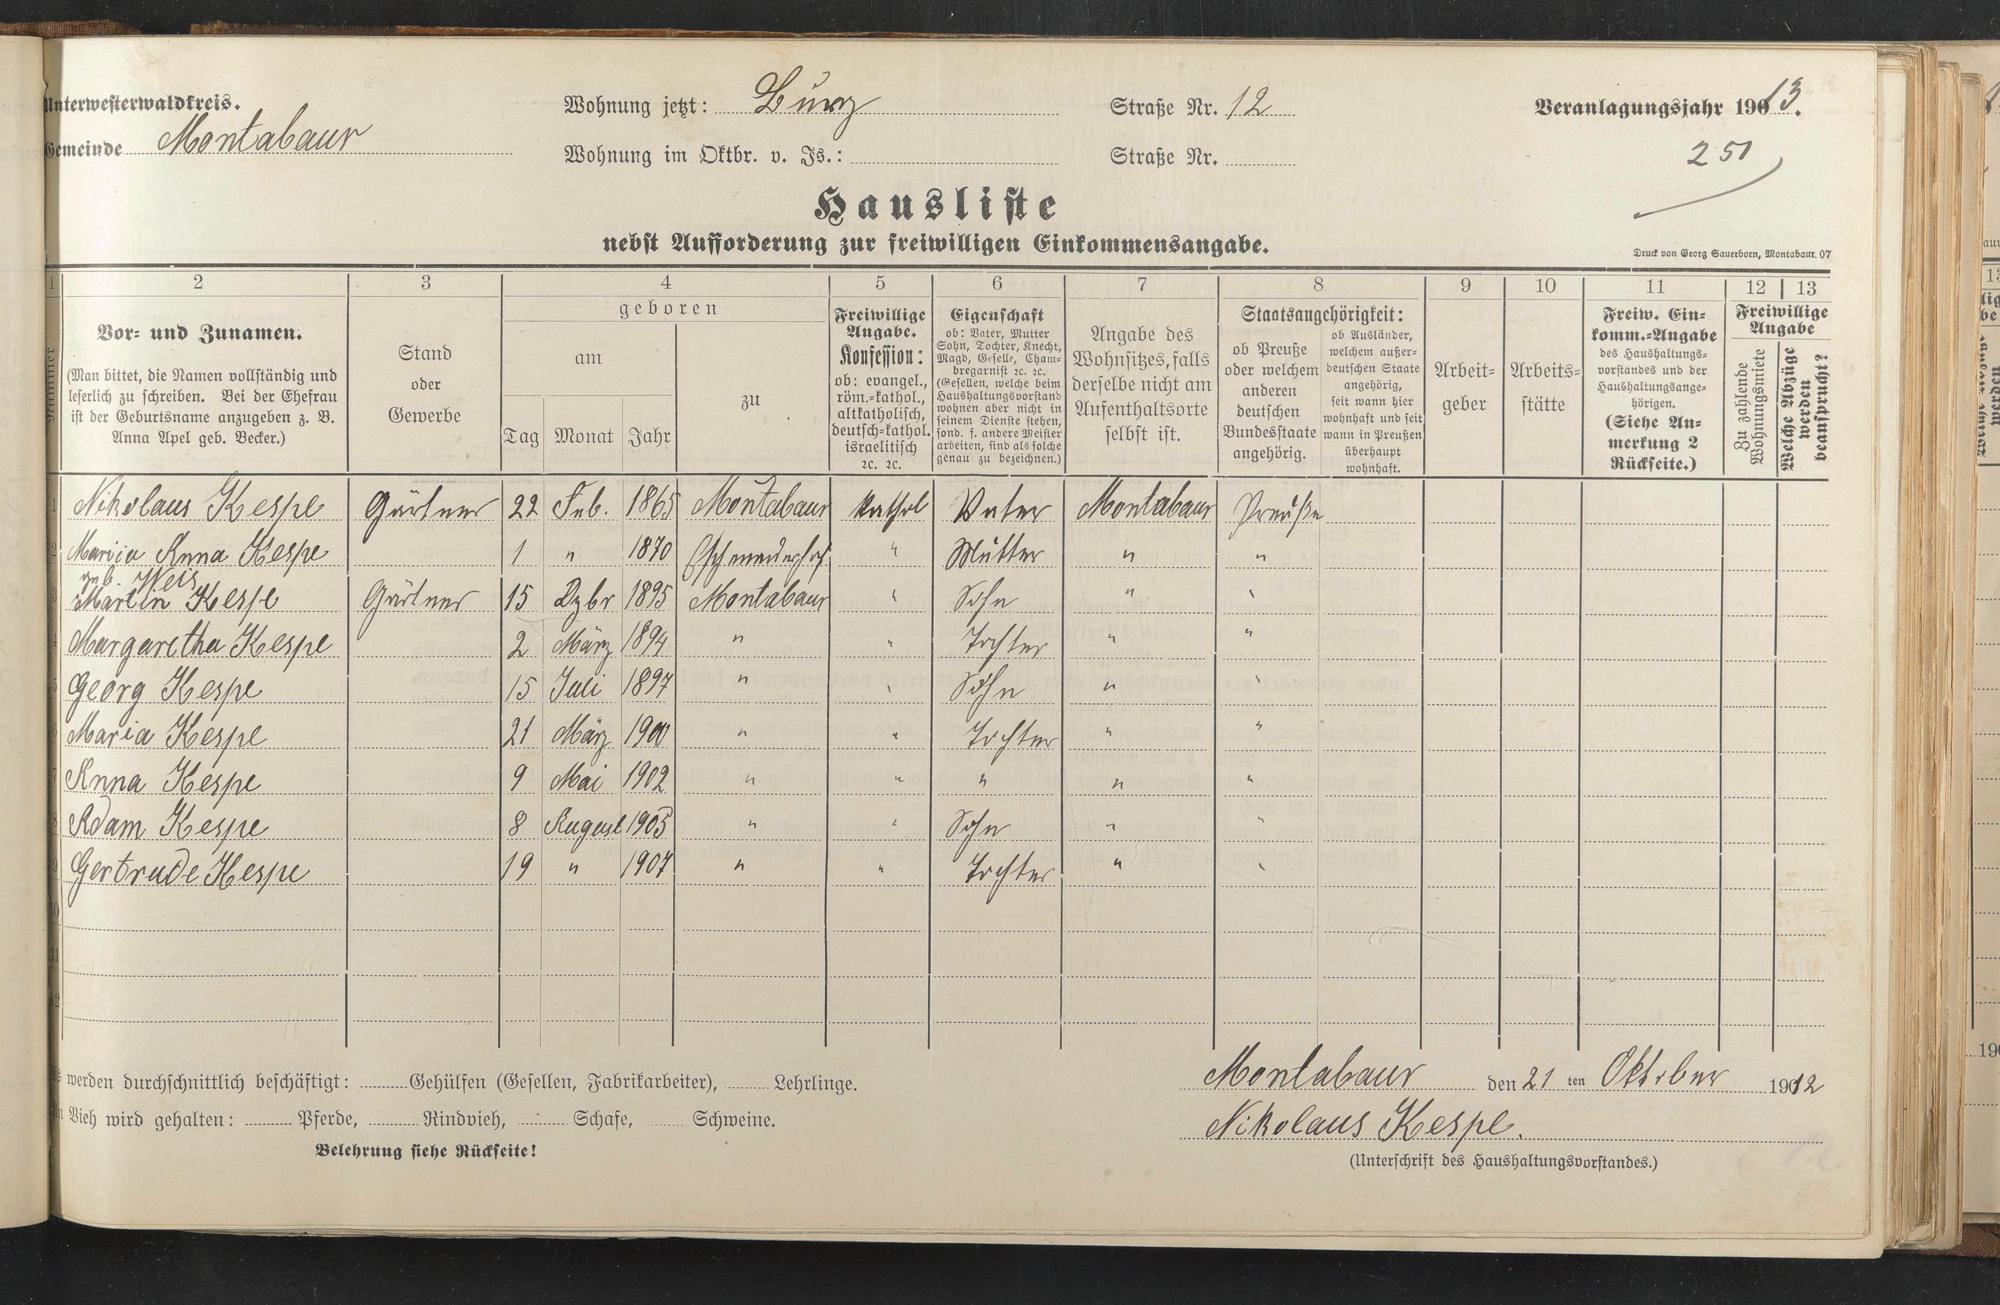 Unterwesterwaldkreis.
Wohnung jetzt: Burg
Straße Nr. 12
Veranlagungsjahr 19013.
Gemeinde Montabaur
Wohnung im Oktbr. v. Js.:
Straße Nr.
251
Hausliste
nebst Aufforderung zur freiwilligen Einkommensangabe.
Druck von Georg Sauerborn, Montabaur. 07
1 2 3 4 5 6 7 8 9 10 11 12 13
Nummer
Vor- und Zunamen.
(Man bittet, die Namen vollständig und
leserlich zu schreiben. Bei der Ehefrau
ist der Geburtsname anzugeben z. B.
Anna Apel geb. Becker.)
Stand
oder
Gewerbe
geboren
am
Tag Monat Jahr
zu
Freiwillige
Angabe.
Konfession:
ob: evangel.,
röm.-kathol.,
altkatholisch,
deutsch-kathol.
israelitisch
ꝛc. ꝛc.
Eigenschaft
ob: Vater, Mutter
Sohn, Tochter, Knecht,
Magd, Geselle, Cham-
bregarnist ꝛc. ꝛc.
(Gesellen, welche beim
Haushaltungsvorstand
wohnen aber nicht in
seinem Dienste stehen,
sond. f. andere Meister
arbeiten, sind als solche
genau zu bezeichnen.)
Angabe des
Wohnsitzes, falls
derselbe nicht am
Aufenthaltsorte
selbst ist.
Staatsangehörigkeit:
ob Preuße
oder welchem
anderen
deutschen
Bundesstaate
angehörig.
ob Ausländer,
welchem außer-
deutschen Staate
angehörig,
seit wann hier
wohnhaft und seit
wann in Preußen
überhaupt
wohnhaft.
Arbeit-
geber
Arbeits-
stätte
Freiw. Ein-
komm.-Angabe
des Haushaltungs-
vorstandes und der
Haushaltungsange-
hörigen.
(Siehe An-
merkung 2
Rückseite.)
Freiwillige
Angabe
Zu zahlende
Wohnungsmiete
Welche Abzüge
werden
beansprucht?
1 Nikolaus Kespe Gärtner 22 Feb. 1865 Montabaur kathol Vater Montabaur Preuße
2 Maria Anna Kespe 1 " 1870 " Mutter " "
geb. Weis
3 Martin Kespe Gärtner 15 Dzbr 1895 Montabaur " Sohn " "
4 Margaretha Kespe 2 März 1894 " " Tochter " "
5 Georg Kespe 15 Juli 1897 " " Sohn " "
6 Maria Kespe 21 März 1900 " " Tochter " "
7 Anna Kespe 9 Mai 1902 " " " " "
8 Adam Kespe 8 August 1905 " " Sohn " "
9 Gertrude Kespe 19 " 1907 " " Tochter " "
10
11
12
werden durchschnittlich beschäftigt: Gehülfen (Gesellen, Fabrikarbeiter), Lehrlinge.
Montabaur den 21 ten Oktober 1912
Vieh wird gehalten: Pferde, Rindvieh, Schafe, Schweine.
Nikolaus Kespe.
Belehrung siehe Rückseite!
(Unterschrift des Haushaltungsvorstandes.)